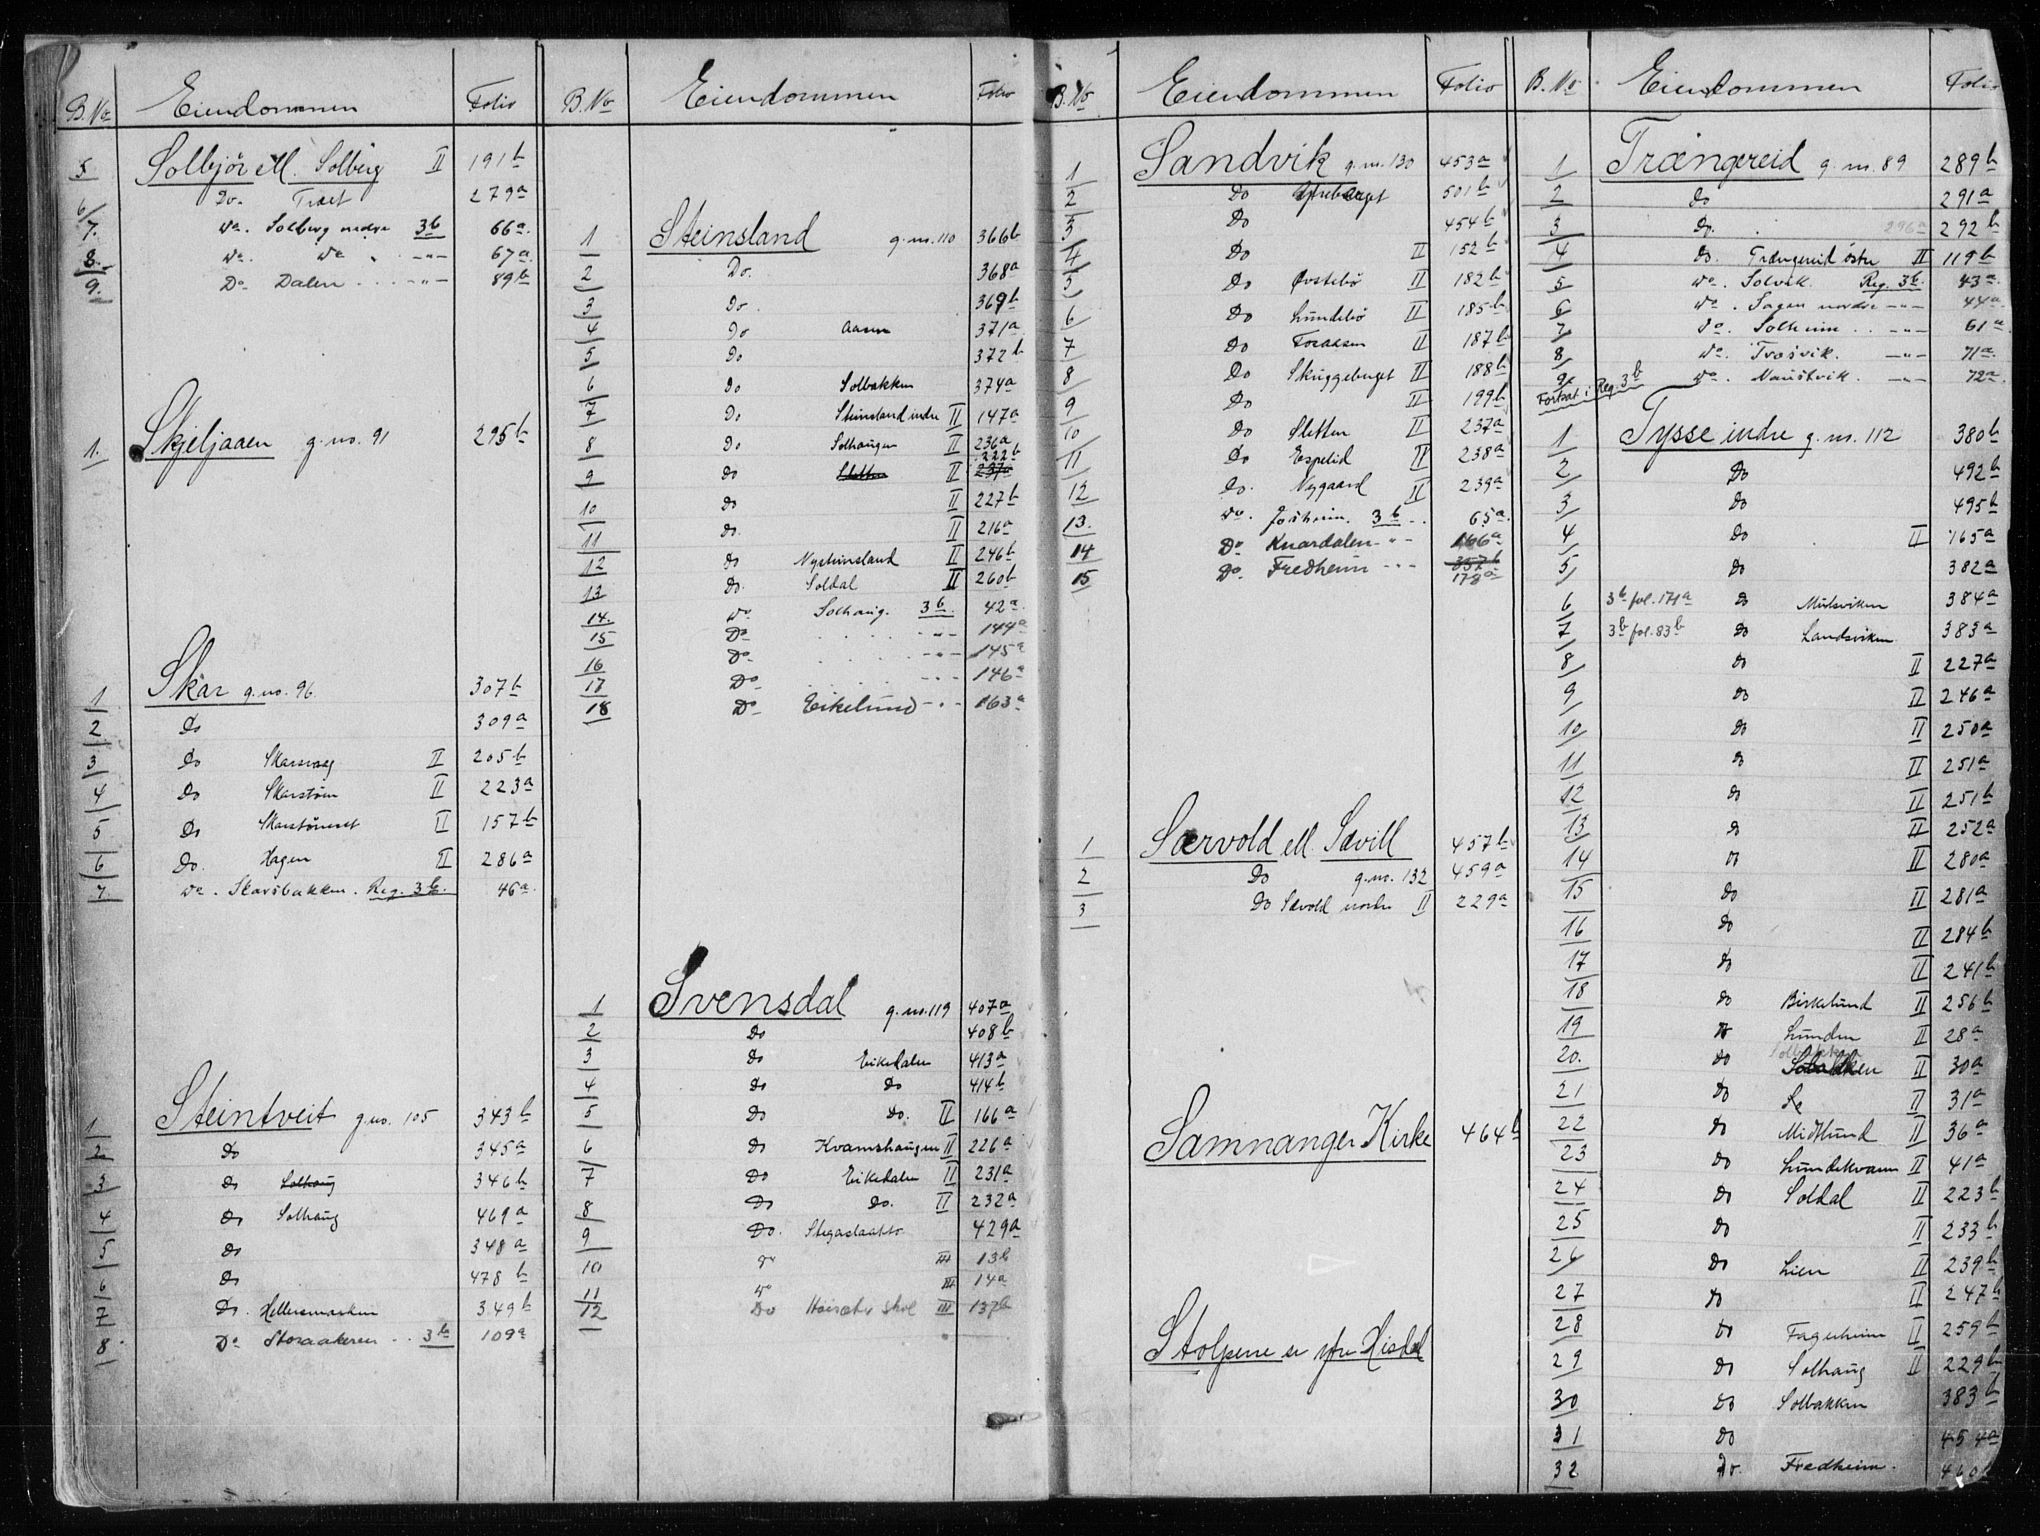 B.No Eiendommen Folio
5 Solbjör ell. Solberg II 191b
6/ Do. Træet 279a
7. do. Solberg nedre 3b 66a.
8. do. do. -"- 67a.
9. Do Dalen -"- 89b
1. Skjeljaaen g.no. 91 295b
1 Skar g.no. 96 307b
2 Do 309a
3 Do Skarsvaag II 205b
4 Do Skarstøen II 223a
5 Do Skarstøneset II 157b
6 Do. Hagen II 286a
7. do. Skarsbakken. Reg. 3b. 46a.
1 Steintveit g.no. 105 343b
2 Do 345a
3 Do Solhaug 346b
4 Do Solhaug 469a
5 Do 348a
6 Do 478b
7 Do. Hellersmarken 349b
8 Do Storaakeren .. 3b 109a
B.No Eiendommen Folio
1 Steinsland g.no. 110 366b
2 Do. 368a
3 Do. 369b
4 Do Aasen 371a
5 Do 372b
6 Do Solbakken 374a
7 Do Steinsland indre II 147a
8 Do Solhaugen II 236a
222b
9 Do Sletten II 237a
10 Do II 227b
11 Do. II 216a
12 Do Nysteinsland II 246b
13 Do. Soldal II 260b
14. do Solhaug. 3b. 42a.
15 Do -"- 144a
16 Do -"- 145a
17 Do -"- 146a
18 Do Eikelund -"- 163a
1 Svensdal g.no. 119 407a
2 Do 408b
3 Do Eikedalen 413a
4 Do Do 414b
5 Do Do. II 166a
6 Do Kvamshaugen II 226a
7 Do Eikedalen II 231a
8 Do Do. II 232a
9 Do. 429a
10 do III 13b
11 do III 14a
12 Do Høisæter skole III 137b
B.No Eiendommen Folio
1 Sandvik g.no. 130 453a
2 Do 501b
3 Do 454b
4 Do II 152b
5 Do Øvstebø II 182b
6 Do Lundebø II 185b
7 Do Foraasen II 187b
8 Do Skuggeberget II 188b
9 Do II 199b
10 Do Sletten II 237a
11 Do Espelid II 238a
12 Do. Nygaard II 239a
13. do. Joheim. 3b .. 65a.
14 Do Knardalen -"- 166a
15 Do. Fredheim -"- 357b
178a
1 Særvold ell. Sævill 457b
2 Do g.no. 132 459a
3 Do Sævold nordre II 229a
Samnanger Kirke 464b
Stolpene se ytre Hisdal
B.No Eiendommen Folio
1 Trængereid g.no. 89 289b
2 Do 291a
3 Do. 296a 292b
4 Do. Trængereid østre II 119b
5 do. Solvik. Reg. 3b. 43a.
6 do. Hagen nordre -"- 44a.
7 do. Solheim .. -"- 61a
8 do. Trosvik. -"- 71a.
9 do. Naustvik. -"- 72a.
Fortsat i Reg. 3b
1 Tysse indre g.no. 112 380b
2 Do 492b
3 Do 495b
4 Do II 165a
5 Do 382a
6 3b fol. 171a Do Mulsviken 384a
7 3b fol. 83b Do Landsviken 383a
8 Do II 227a
9 Do II 246a
10 Do II 250a
11 Do II 251a
12 Do II 251b
13 Do II 252a
14 Do II 280a
15 Do II 281a
16 Do II 284b
17 Do II 241b
18 Do Birkelund II 256b
19 Do Lunden II 28a
20. Do Solbakken II 30a
21 Do Le II 31a
22 Do Midtlund II 36a
23 Do Lundekvam II 41a
24 Do Soldal II 223b
25 Do II 233b
26 Do Lien II 239b
27 Do II 247b
28 Do Fagerheim II 259b
29 Do Solhaug II 229b
30 Do Solbakken 383b
31 Do 454a
32 Do. Fredheim. 460b